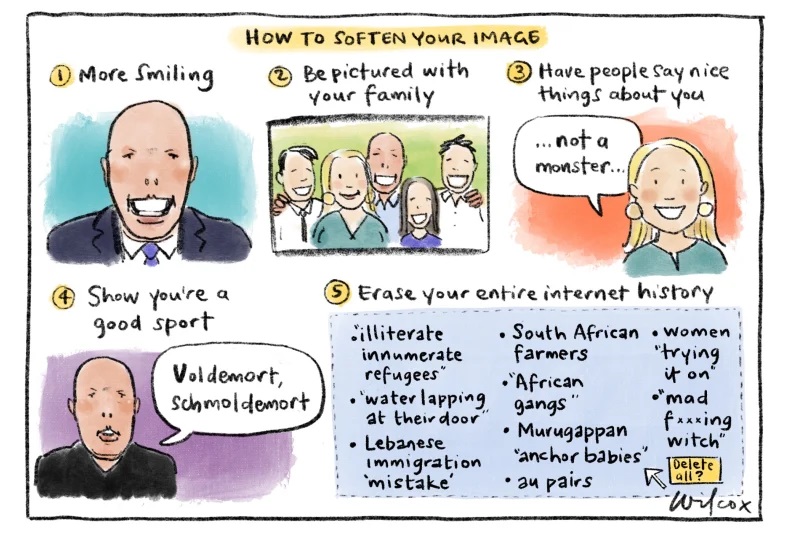 HOW TO SOFTEN YOUR IMAGE
1 More Smiling
2 Be pictured with
your family
3 Have people say nice
things about you
...not a
monster...
4 Show you're a
good sport
Voldemort,
schmoldemort
5 Erase your entire internet history
• "illiterate
innumerate
refugees"
• "water lapping
at their door"
• Lebanese
immigration
'mistake'
• South African
farmers
• "African
gangs"
• Murugappan
"anchor babies"
• au pairs
• women
"trying
it on"
• "mad
f×××ing
witch"
Delete
all?
Wilcox